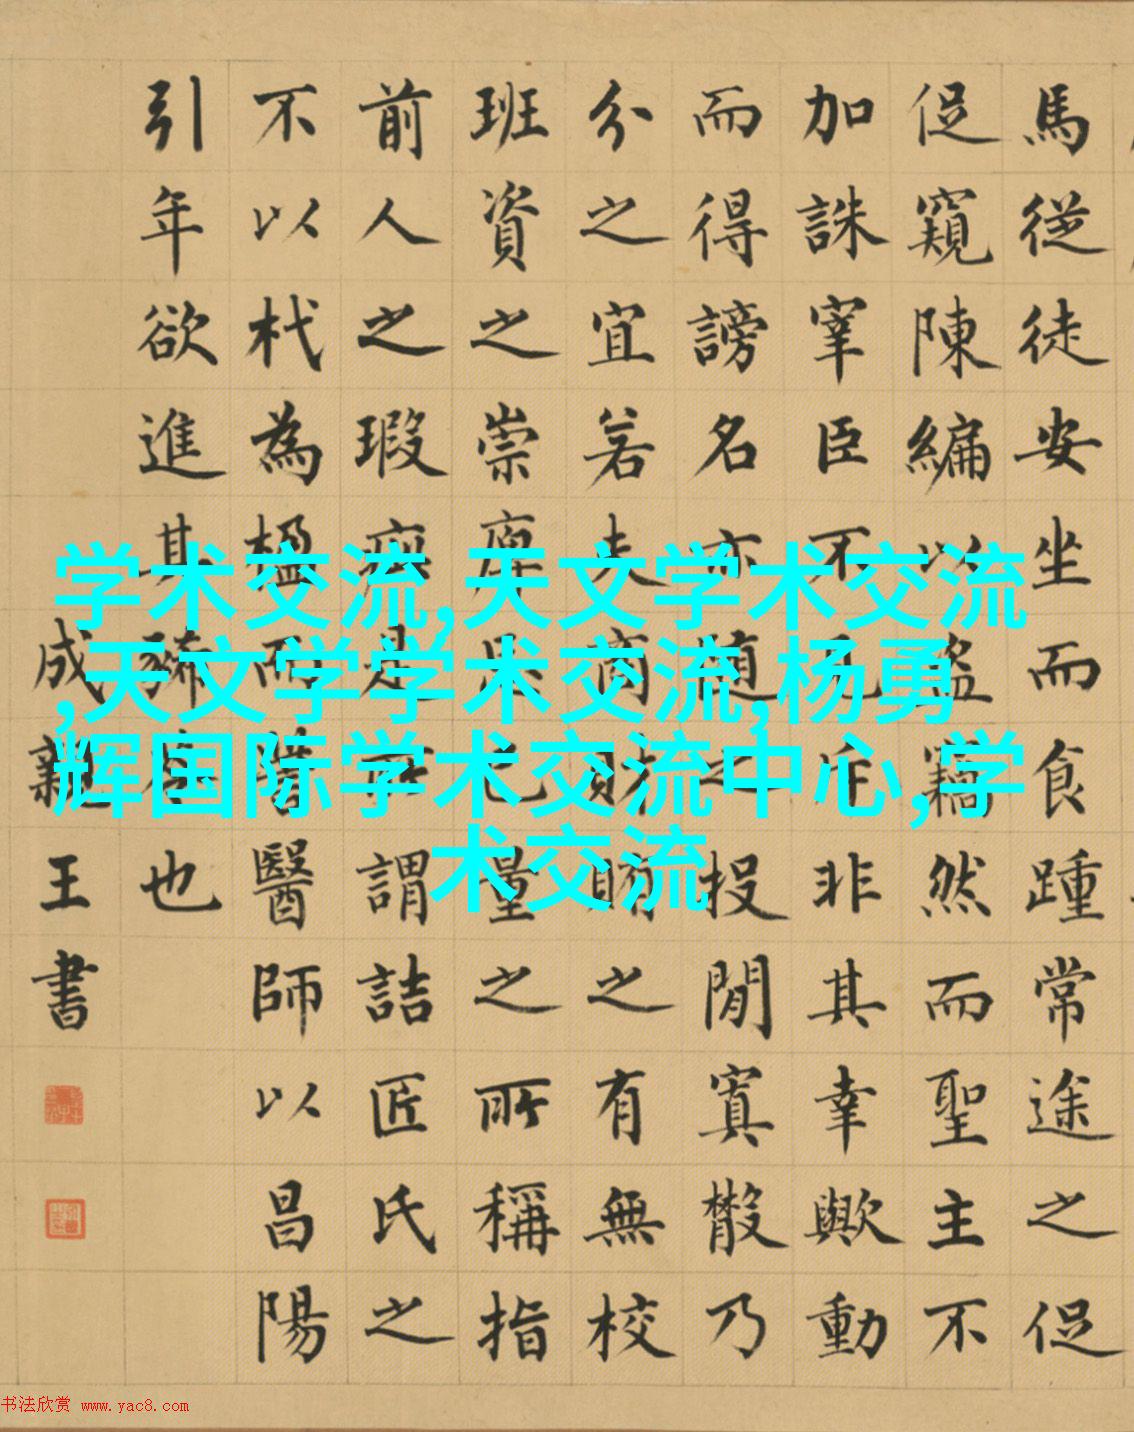 馬從徒安坐而食踵常途之促
促窺陳編以盜竊然而聖主不
加誅宰臣不見斥非其幸歟動
而得謗名亦隨之投閒寘散乃
分之宜若夫商財賄之有無校
班資之崇庳忘己量之所稱指
前人之瑕疵是所謂詰匠氏之
不以杙為楹而訾醫師以昌陽
引年欲進其豨苓也
成親王書
学术交流,天文学术交流
,天文学学术交流,杨勇
辉国际学术交流中心,学
术交流
书法欣赏 www.yac8.com